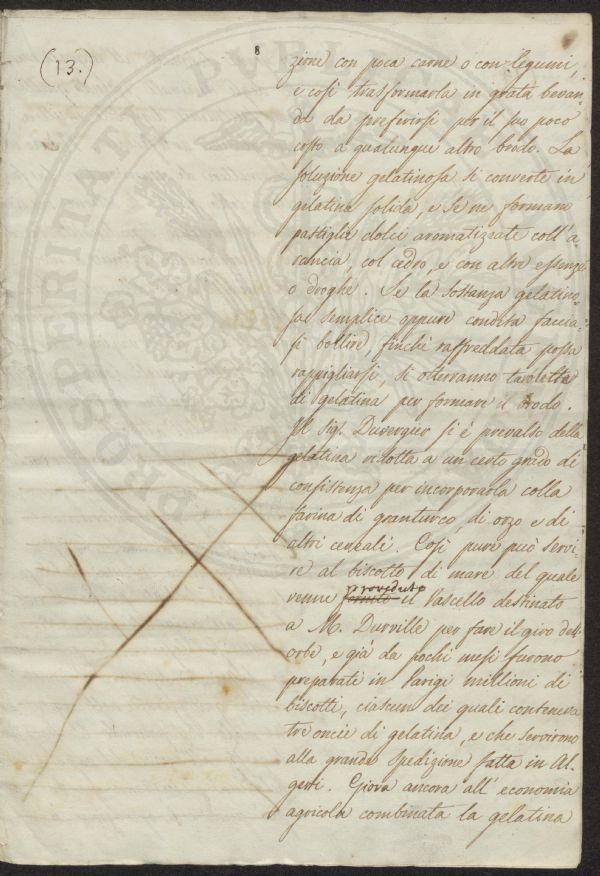 (13.)
8
zione con poca carne o con legumi,
e così trasformarla in grata bevan=
da da preferirsi per il suo poco
costo a qualunque altro brodo. La
soluzione gelatinosa si converte in
gelatina solida, e se ne formano
pastiglie dolci aromatizzate coll'a=
rancia, col cedro, e con altre essenze
o droghe. Se la sostanza gelatino=
sa semplice oppure condita faccia=
si bollire finchè raffreddata possa
rappigliarsi, si otterranno tavolette
di gelatina per formare il brodo.
Il Sig. Duvergier si è prevalso della
gelatina ridotta a un certo grado di
consistenza per incorporarla colla
farina di granturco di orzo e di
altri cereali. Così pure può servi=
re al biscotto di mare del quale
provveduto
venne fornito il Vascello destinato
a M. Durville per fare il giro dell'
orbe, e già da pochi mesi furono
preparati in Parigi millioni di
biscotti, ciascun dei quali conteneva
tre oncie di gelatina, e che servirono
alla grande spedizione fatta in Al=
geri. Giova ancora all'economia
agricola combinata la gelatina
PVBLICAE
PROSPERITATI